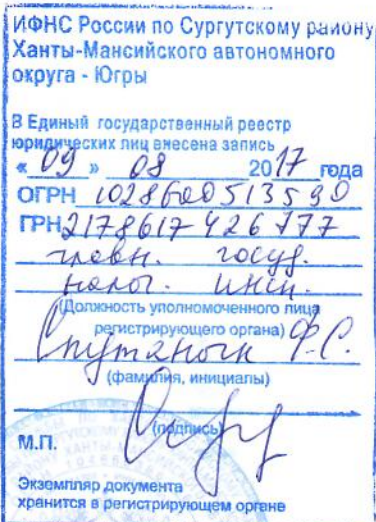 ИФНС России по Сургутскому району
Ханты-Мансийского автономного
округа - Югры
В Единый государственный реестр
юридических лиц внесена запись
« 09 » 08 2017 года
ОГРН 1028600513590
ГРН 2178617426777
главн. госуд.
налог. инсп.
(Должность уполномоченного лица
регистрирующего органа)
Ф.С.
(фамилия, инициалы)
(подпись)
М.П.
Экземпляр документа
хранится в регистрирующем органе